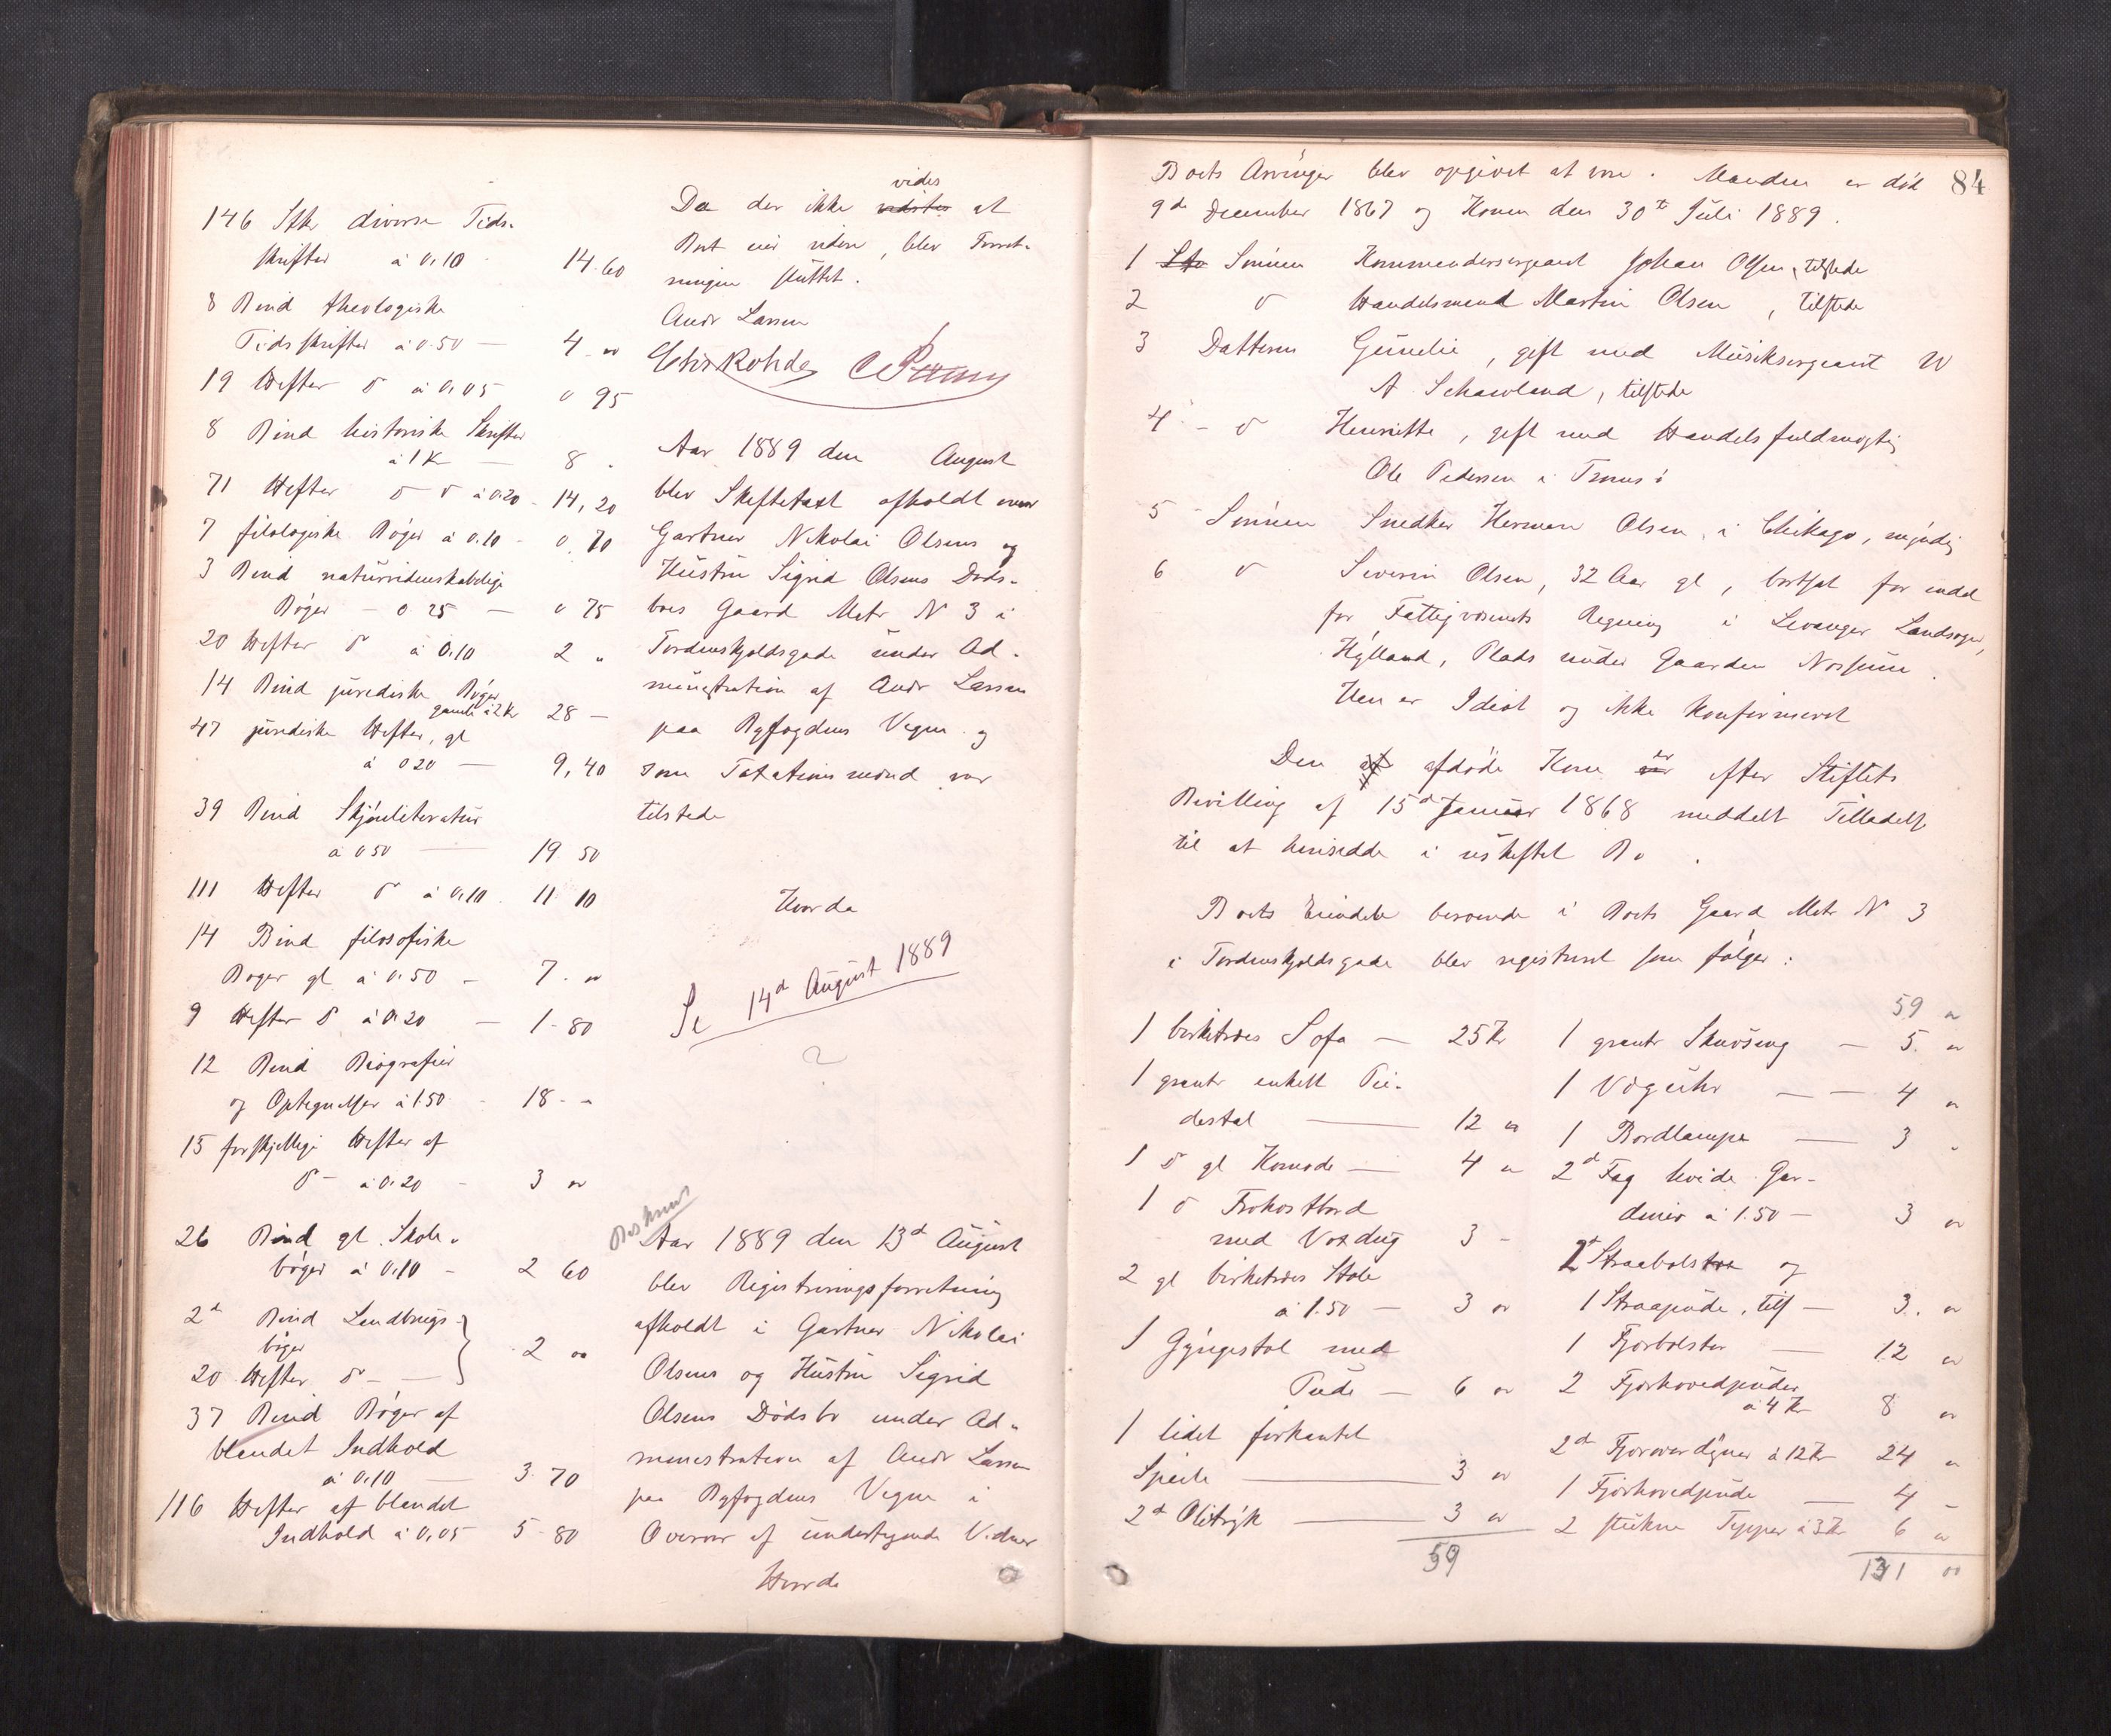 146 Stk diverse Tids-
skrifter à 0.10 14.60
8 Bind theologiske
Tidsskrifter à 0.50 — 4 "
19 Hefter d à 0,05 0 95
8 Bind historiske Skrifter
à 1 Kr — 8 "
71 Hefter d d à 0.20 - 14,20
7 filologiske Bøger à 0.10 - 0.70
3 Bind naturvidenskabelige
Bøger - 0 25 — 0 75
20 Hefter d à 0.10 2 "
14 Bind juridiske Bøger
gamle à 2 Kr 28 —
47 juridiske Hefter, gl
à 0 20 — 9,40
39 Bind Skjønliteratur
à 0 50 — 19.50
111 Hefter d à 0,10 11 10
14 Bind filosofiske
Bøger gl à 0.50 - 7 - "
9 Hefter d à 0.20 — 1 - 80
12 Bind Biografier
og Optegnelser à 1.50 - 18 - "
15 forskjellige Hefter af
d - à 0.20 - 3 "
26 Bind gl. Skole-
bøger à 0,10 - 2 60
2d Bind Landbrugs-
bøger
20 Hefter d - — 2 "
37 Bind Bøger af
blandet Indhold
à 0,10 — 3.70
116 Hefter af blandet
Indhold à 0,05 5 - 80
vides
Da der ikke vidstes at
Boet eier videre, blev Forret-
ningen sluttet.
Andr Larsen
Chr Rohde
Aar 1889 den August
blev Skiftetaxt afholdt over
Gartner Nikolai Olsens og
Hustru Sigrid Olsens Døds-
boes Gaard Matr N 3 i
Tordenskjoldsgade under Ad-
ministration af Andr Larsen
paa Byfogdens Vegne og
som Taxationsmænd var
tilstede
Hvorda
Se 14d August 1889
?
Beskrevet
Aar 1889 den 13d August
blev Registreringsforretning
afholdt i Gartner Nikolai
Olsens og Hustru Sigrid
Olsens Dødsbo under Ad-
ministration af Andr Larsen
paa Byfogdens Vegne i
Overvær af undertegnede Vidner
Hvorda
84
Boets Arvinger blev opgivet at være. Manden er død
9de December 1867 og Konen den 30te Juli 1889.
1 Sønnen Kommandersergeant Johan Olsen, tilstede
2 d Handelsmand Martin Olsen, tilstede
3 Datteren Gunelie, gift med Musiksergeant W
A. Schawland, tilstede
4 - d Henriette, gift med Handelsfuldmægtig
Ole Pedersen i Tromsø
5 - Sønnen Snedker Herman Olsen, i Chikago, myndig
6 d Severin Olsen, 32 Aar gl, bortsat for
for Fattigvæsenets Regning i Levanger Landsogn,
Hylland, Plads under Gaarden Nossum.
Han er Idiot og ikke konfirmeret
Den afdøde Kone er efter Stiftets
Bevilling af 15d Januar 1868 meddelt Tilladelse
til at hensidde i uskiftet Bo.
Boets Eiendele beroende i Boets Gaard Matr N 3
i Tordenskjoldsgade blev registreret som følger:
1 birketræes Sofa — 25 Kr
1 grantr enkelt Pie-
destal — 12 "
1 d gl Komode — 4 "
1 d Frokostbord
med Voxdug 3 -
2 gl birketræes Stole
à 1.50 — 3 "
1 Gyngestol med
Pude — 6 "
1 lidet firkantet
Speile — 3 "
2d Olitryk — 3 "
59
59 "
1 grantr Skuvseng — 5. "
1 Vægguhr — — 4 "
1 Bordlampe — 3 "
2d Fag hvide Gar-
diner à 1.50 — 3 "
2d Straabolstre og
1 Straapude, tils — 3. "
1 Fjærbolster — 12 "
2 Fjærhovedpuder
à 4 Kr 8 "
2d Fjæroverdyner à 12 Kr 24 "
1 Fjærhovedpude — 4 -
2 stukne Tepper à 3 Kr 6 "
131 "